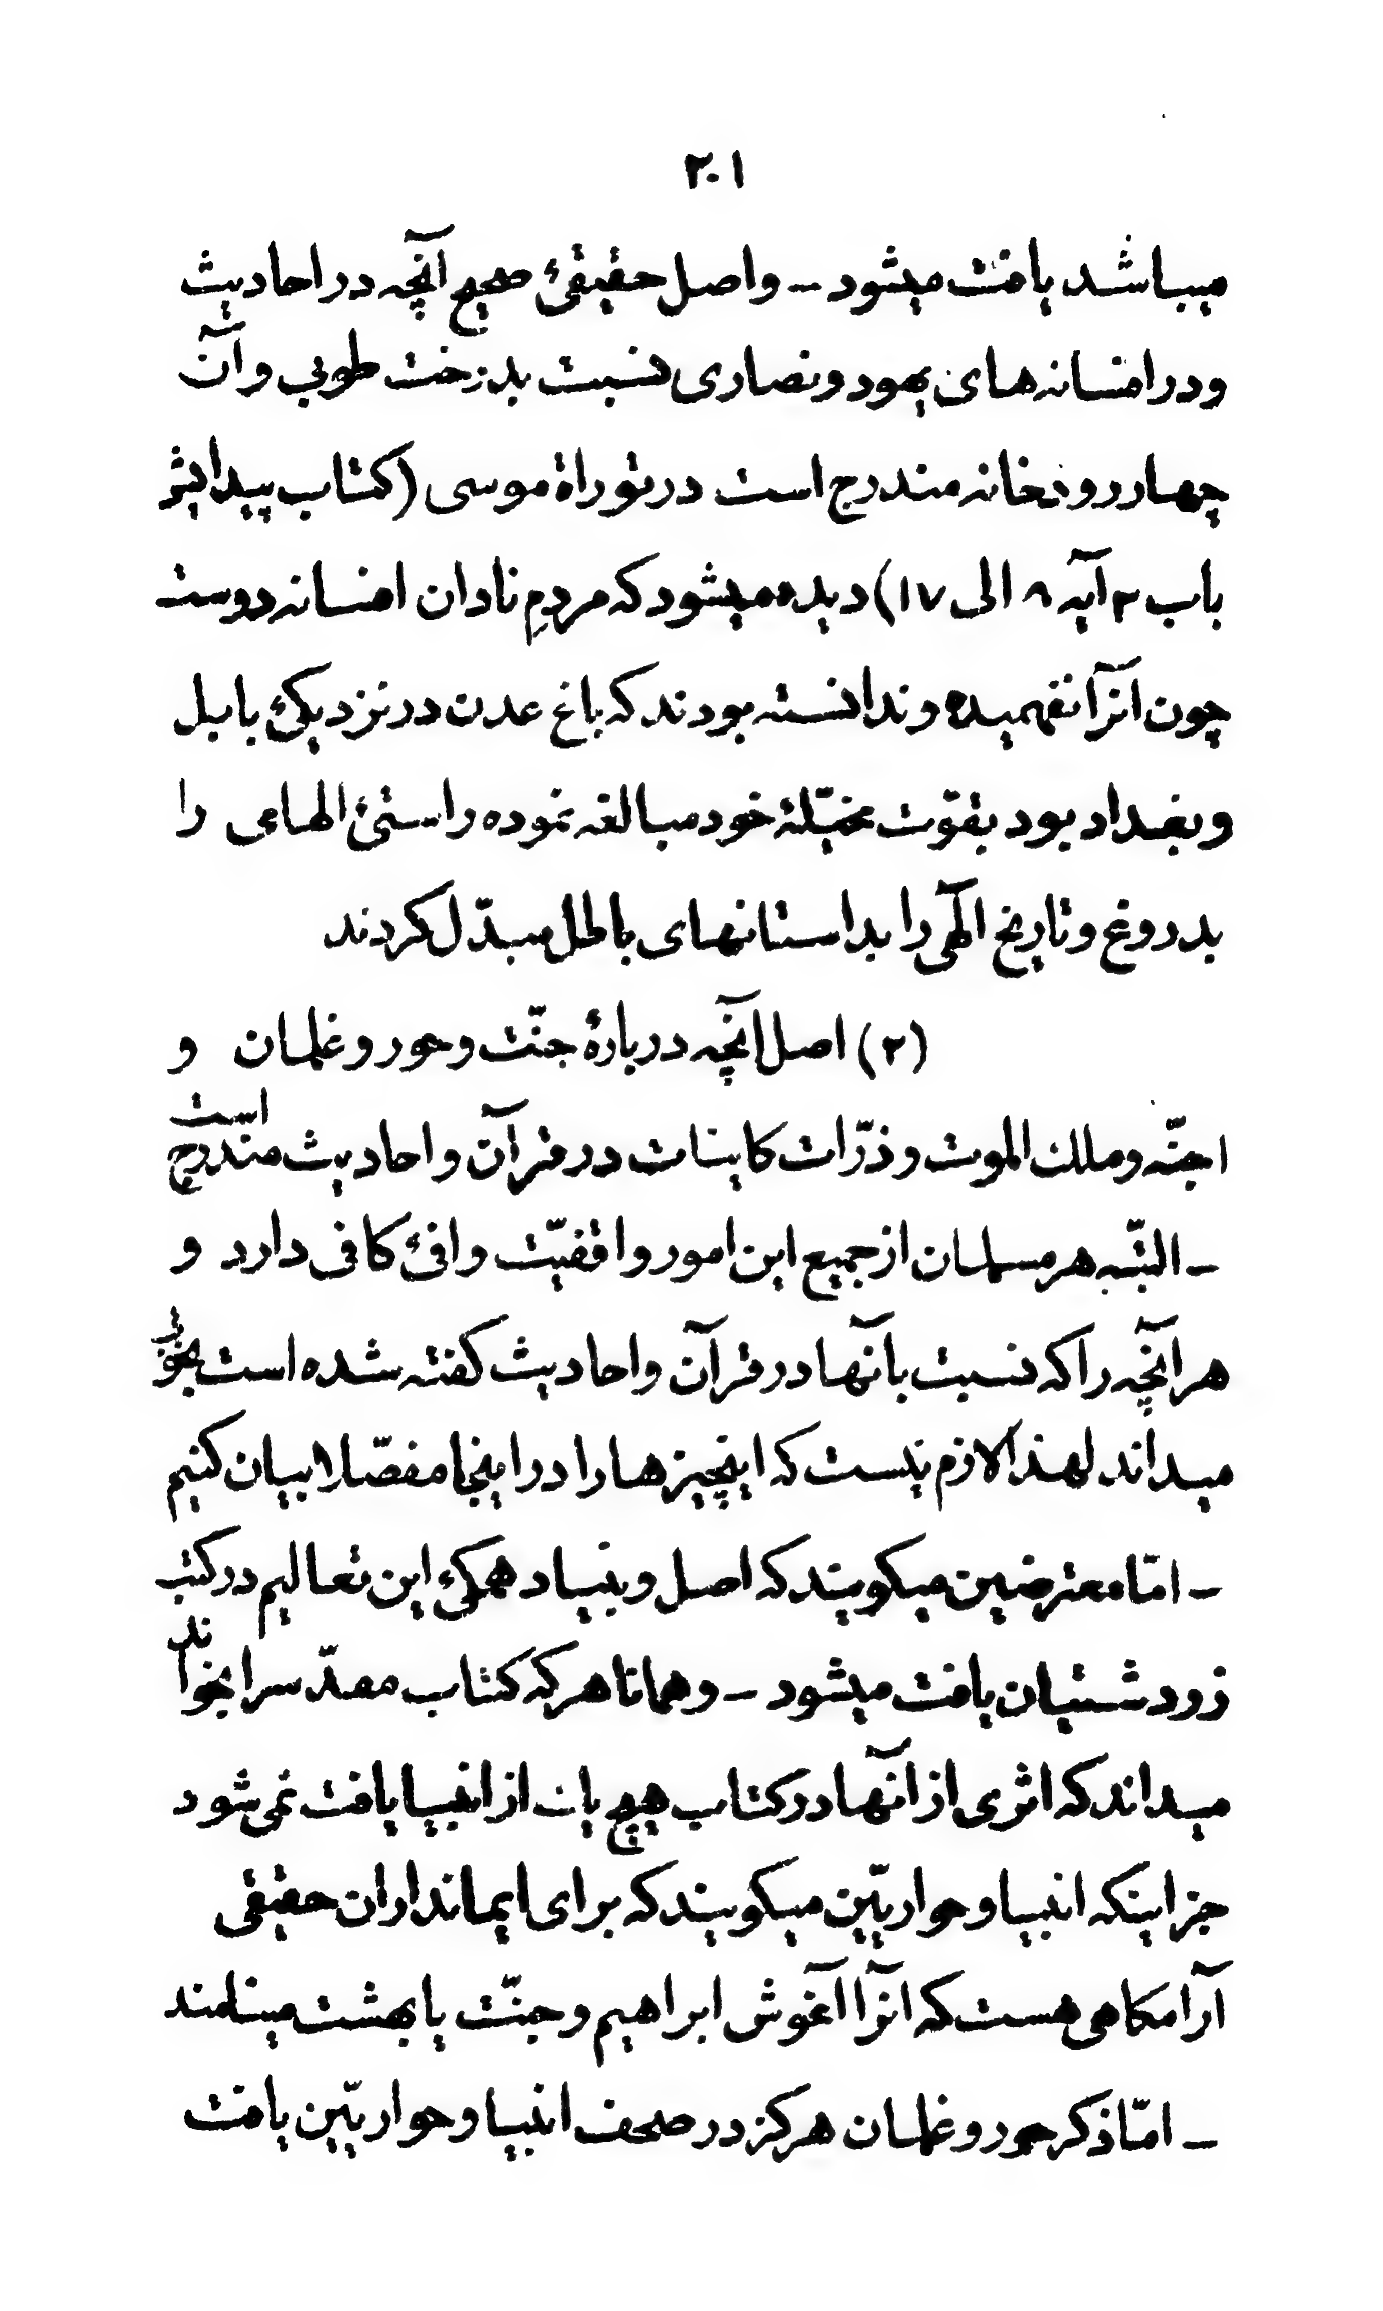 ۲۰۱
میباشد یافت میشود – واصل حقیقیٔ صحیح آنچه در احادیث
و در افسانه های یهود و نصاری نسبت بدرخت طوبی و آن
چهار رودخانه مندرج است در توراة موسی (کتاب پیدایش
باب ۲ آیه ۸ الی ۱۷) دیده میشود که مردمِ نادان افسانه دوست
چون آنرا نفهمیده و ندانسته بودند که باغ عدن در نزدیکیٔ بابل
و بغداد بود بقوّت مخیّلهٔ خود مبالغه نموده راستیٔ الهامی را
بدروغ و تاریخ الٓهی را بداستانهای باطل مبدّل کردند
(۲) اصل آنچه دربارهٔ جنّت و حور و غلمان و
اجنّه و ملك الموت و ذرّات کاینات در قرآن و احادیث مندرج است
– البتّه هر مسلمان از جمیع این امور واقفیّت وافیٔ کافی دارد و
هر آنچه را که نسبت بآنها در قرآن و احادیث کفته شده است بخوبی
میداند لهذا لازم نیست که اینچیزها را در اینجا مفصّلا بیان کنیم
– امّا معترضین میکویند که اصل و بنیاد همکیٔ این تعالیم در کتب
زردشتیان یافت میشود – و همانا هر که کتاب مقدّسرا بخواند
میداند که اثری از آنها در کتاب هیچ یك از انبیا یافت نمی شود
جز اینکه انبیا و حواریّین میکویند که برای ایمانداران حقیقی
آرامکاهی هست که آنرا آغوش ابراهیم و جنّت یا بهشت مینامند
– امّا ذکر حور و غلمان هرکز در صحف انبیا و حواریّین یافت